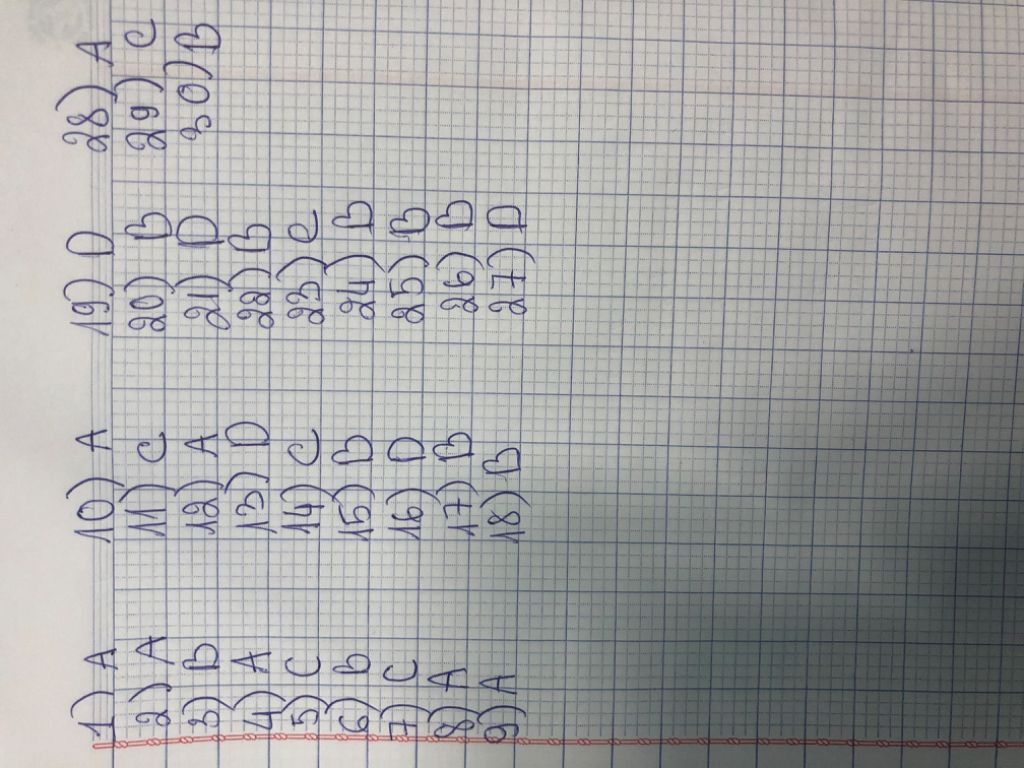 1) A
2) A
3) B
4) A
5) C
6) B
7) C
8) A
9) A
10) A
11) C
12) A
13) D
14) C
15) B
16) D
17) B
18) B
19) D
20) B
21) D
22) B
23) C
24) B
25) B
26) B
27) D
28) A
29) C
30) B